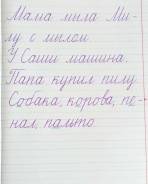 Мама мыла Ми-
лу с мылом.
У Саши машина.
Папа купил пилу
Собака, корова, пе-
нал, пальто